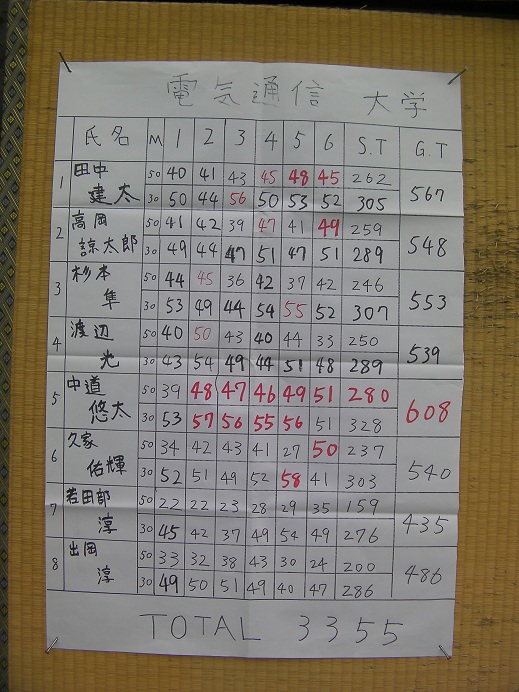 電気通信 大学
氏名 M 1 2 3 4 5 6 S.T G.T
1 田中 建太 50 40 41 43 45 48 45 262 567
30 50 44 56 50 53 52 305
2 高岡 諒太郎 50 41 42 39 47 41 49 259 548
30 49 44 47 51 47 51 289
3 杉本 隼 50 44 45 36 42 37 42 246 553
30 53 49 44 54 55 52 307
4 渡辺 光 50 40 50 43 40 44 33 250 539
30 43 54 49 44 51 48 289
5 中道 悠太 50 39 48 47 46 49 51 280 608
30 53 57 56 55 56 51 328
6 久家 佑輝 50 34 42 43 41 27 50 237 540
30 52 51 49 52 58 41 303
7 若田部 淳 50 22 22 23 28 29 35 159 435
30 45 42 37 49 54 49 276
8 出岡 淳 50 33 32 38 43 30 24 200 486
30 49 50 51 49 40 47 286
TOTAL 3355